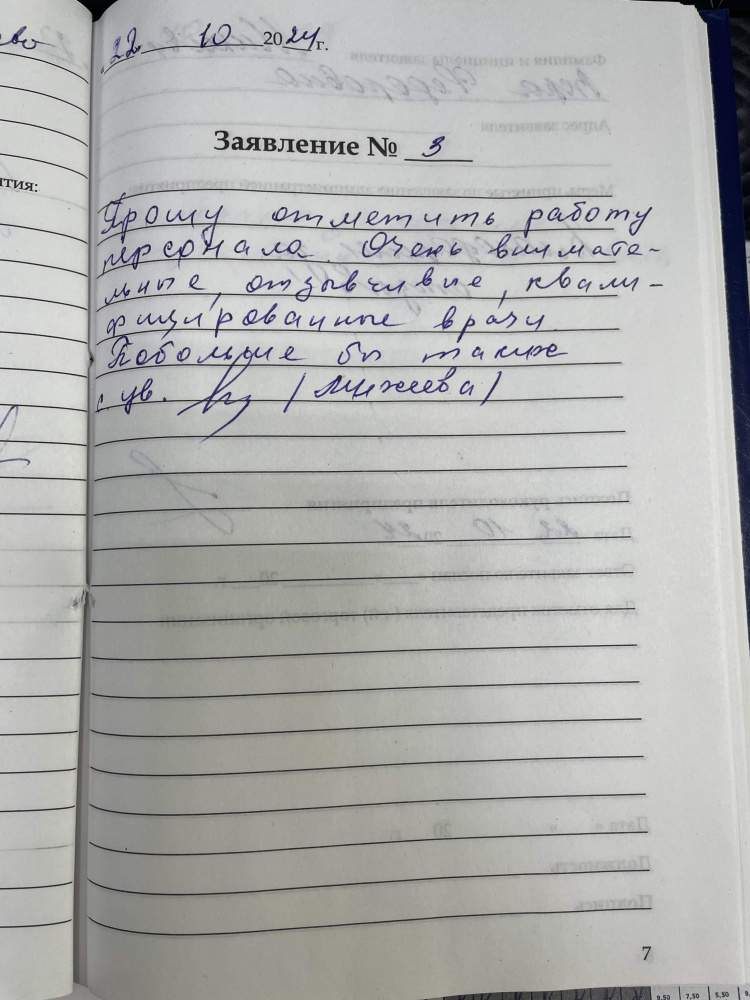 22 10 2024г.
Заявление № 3
Прошу отметить работу
персонала. Очень внимате-
льные, отзывчивые, квали-
фицированные врачи.
Побольше бы таких
с ув. (Михеева)
тия:
7
9,50 7,50 5,50